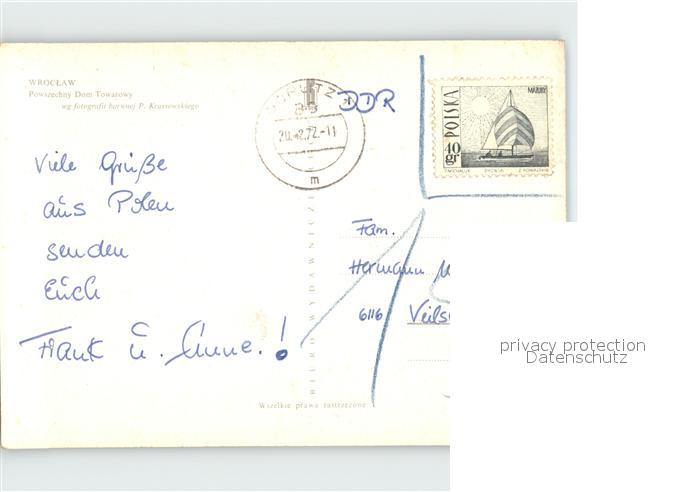 WROCŁAW
Powszechny Dom Towarowy
wg fotografii barwnej P. Krassowskiego
GÖRLITZ
20.12.72.-11
m
DDR
POLSKA
40 gr
Viele Grüße
aus Polen
senden
Euch
Frank u. Anne.!
Fam.
Hermann
6116
BIURO WYDAWNICZE
Wszelkie prawa zastrzeżone
privacy protection
Datenschutz